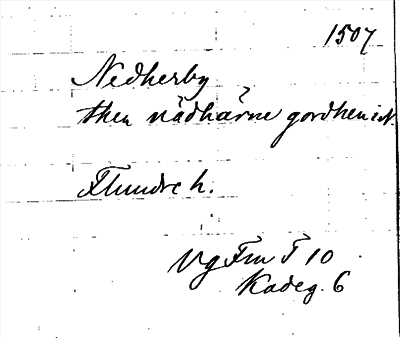 1507
Nedherby
then nädhärne gordhen i N.
Flundre h.
Vg Fm T 10
Kadeg. 6